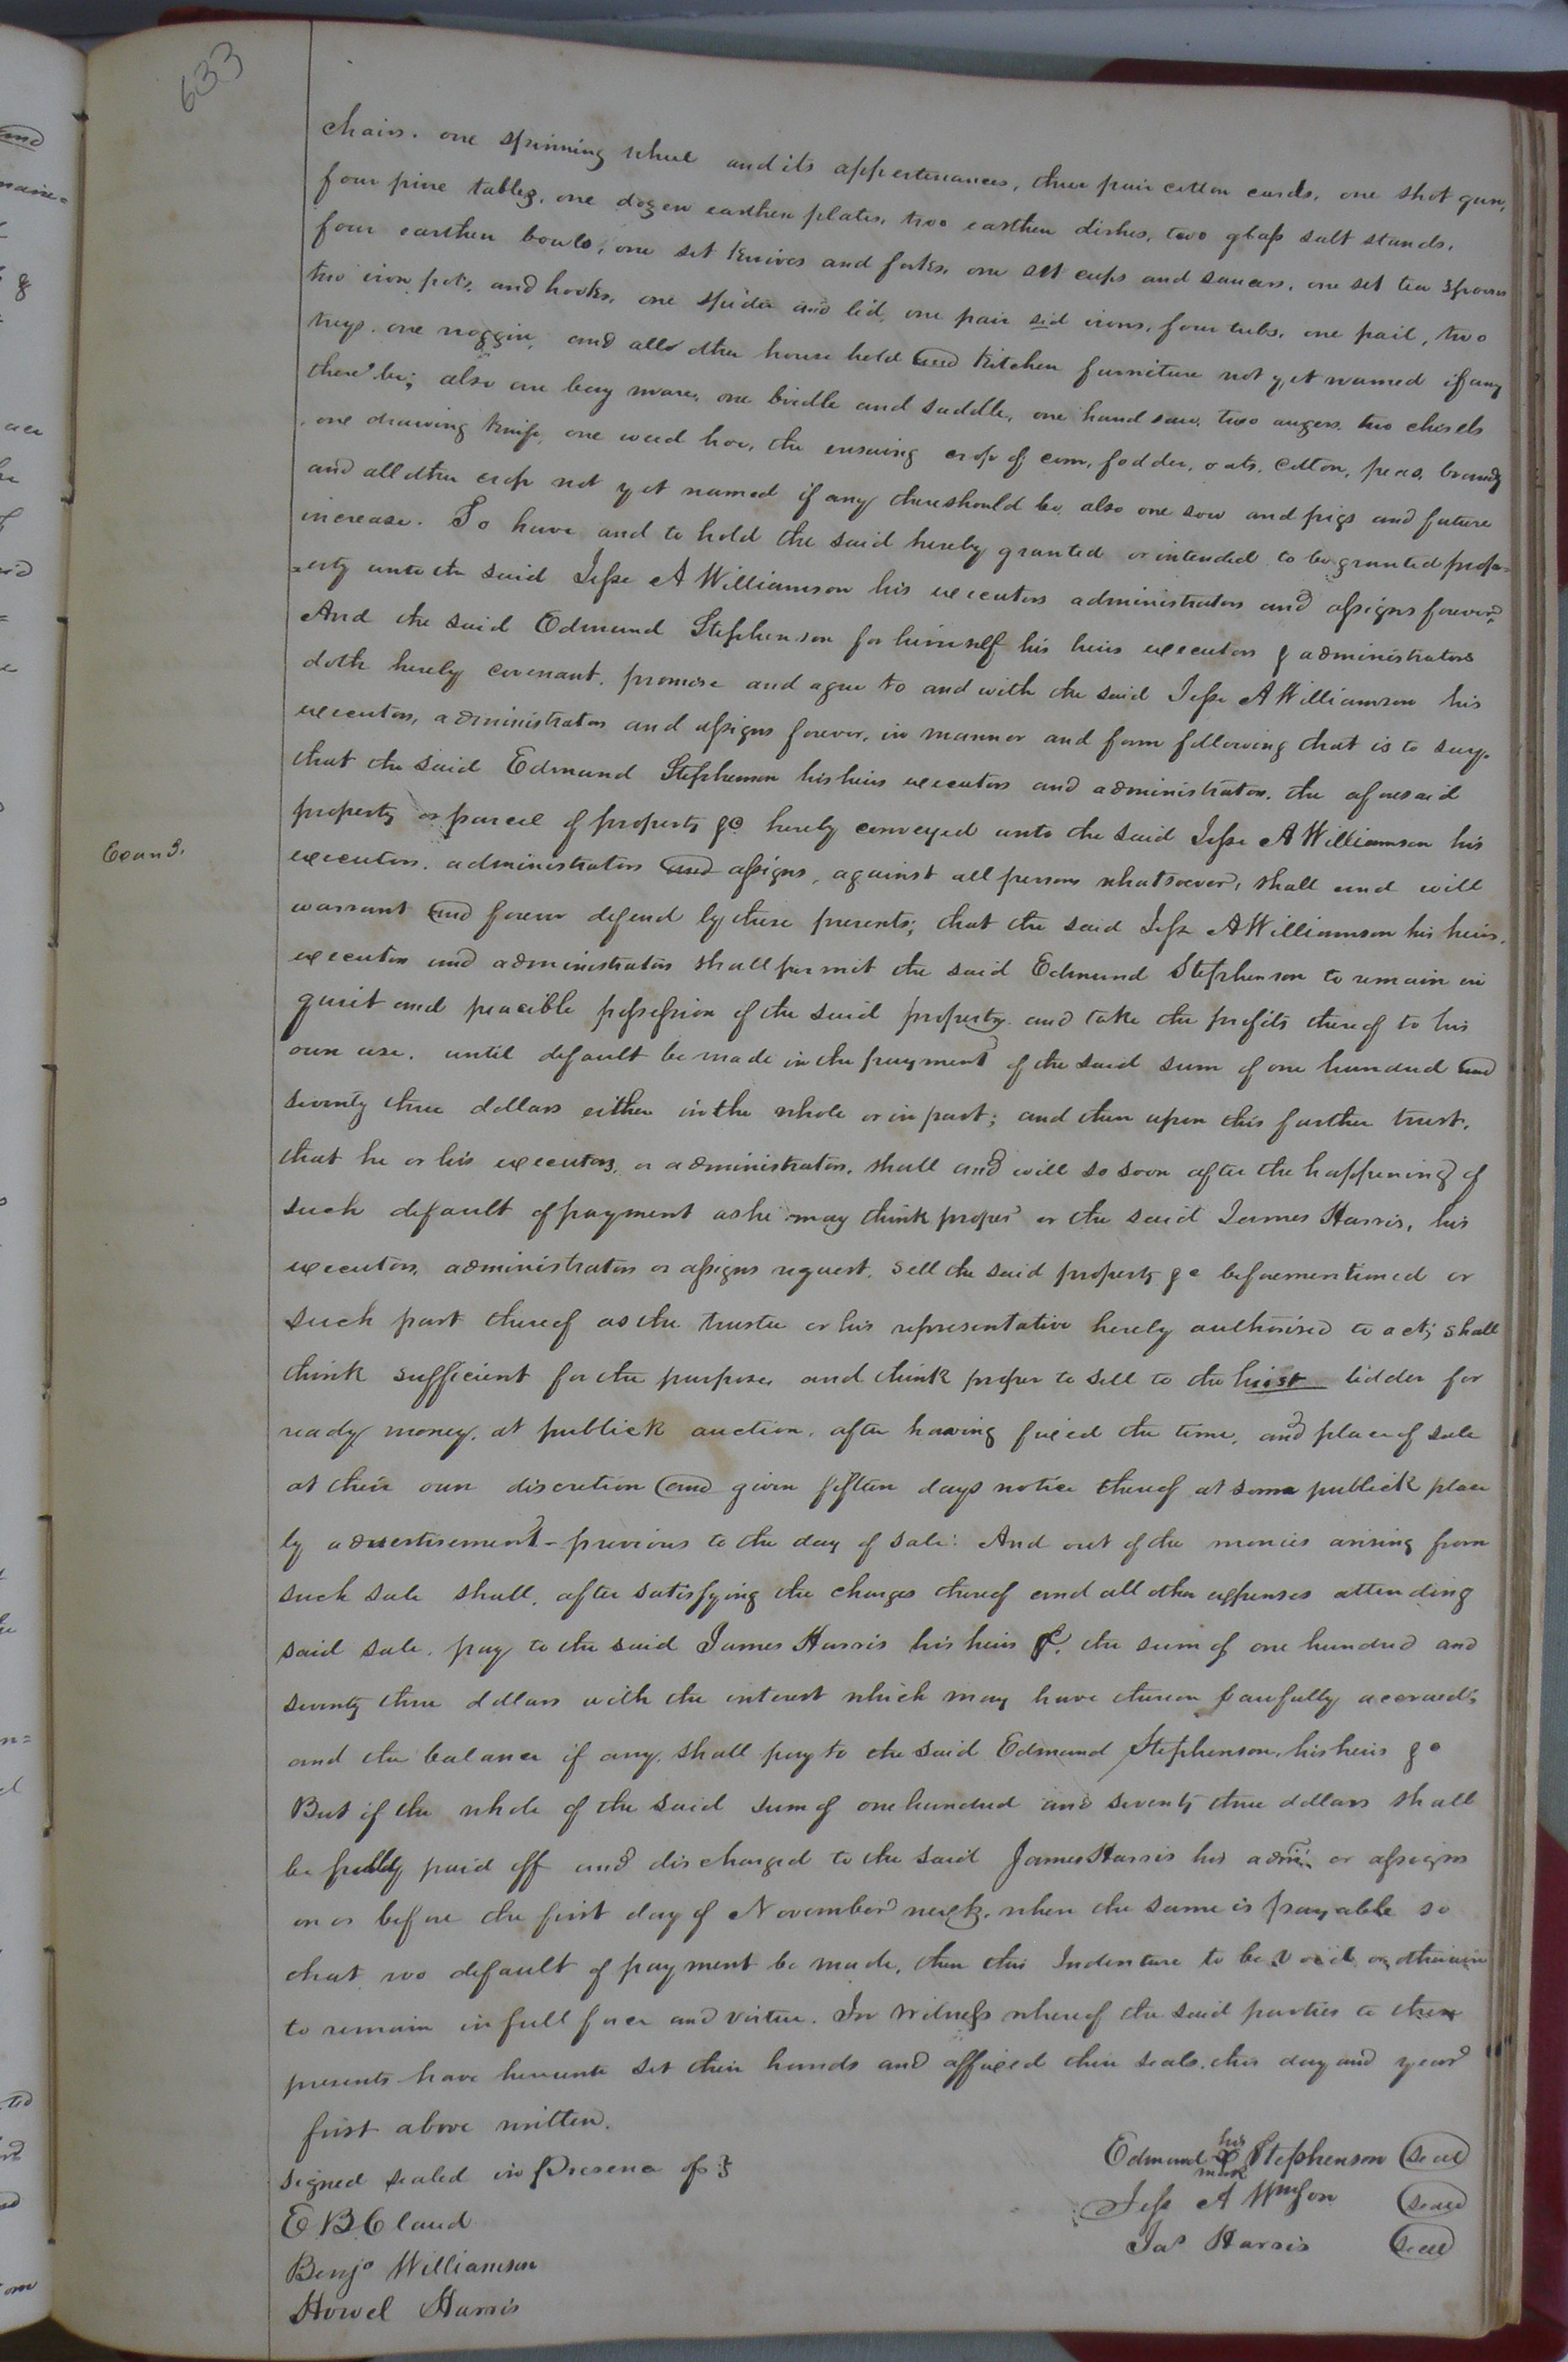 633
chairs. one spinning wheel and its appertenances, three pair cotton cards, one shot gun,
four pine tables, one dozen earthen plates, two earthen dishes, two glass salt stands,
four earthen bowls, one set knives and forks, one set cups and saucers, one set tea spoons
two iron pots, and hooks, one spider and lid, one pair sid irons, four tubs, one pail, two
trays. one noggin, and all other house hold and kitchen furniture not yet named if any
there be; also one bay mare, one bridle and saddle, one hand saw, two augers, two chisels
, one drawing knife, one weed hoe, the ensuing crop of corn, fodder, oats, cotton, peas, brandy
and all other crop not yet named if any there should be, also one sow and pigs and future
increase. To have and to hold the said hereby granted or intended to be granted prop=
=erty unto the said Jesse A Williamson his executors administrators and assigns forever,
And the said Edmund Stephenson for himself his heirs executors & administrators
doth hereby covenant, promise and agree to and with the said Jesse A Williamson his
executors, administrators and assigns forever, in manner and form following that is to say.
that the said Edmund Stephenson his heirs executors and administrators, the aforesaid
property or parcel of property &c hereby conveyed unto the said Jesse A Williamson his
Exand.
executors. administrators and assigns, against all persons whatsoever, shall and will
warrant and forever defend by these presents; that the said Jesse A Williamson his heirs,
executors and administrators shall permit the said Edmund Stephenson to remain in
quiet and peacible possession of the said property and take the profits thereof to his
own use. until default be made in the payment of the said sum of one hundred and
seventy three dollars either in the whole or in part; and then upon this further trust,
that he or his executors, or administrators, shall and will so soon after the happening of
such default of payment as he may think proper or the said James Harris, his
executors, administrators or assigns request, sell the said property &c beforementioned or
such part thereof as the trustee or his representative hereby authorised to act, shall
think sufficient for the purpose, and think proper to sell to the hiest bidder for
ready money, at publick auction, after having fixed the time, and place of sale
at their own discretion and given fifteen days notice thereof at some publick place
by advertisement - previous to the day of sale: And out of the monies arising from
such sale shall, after satisfying the charges thereof and all other expenses attending
said sale, pay to the said James Harris his heirs &c. the sum of one hundred and
seventy three dollars with the interest which may have thereon lawfully accrued;
and the balance if any, shall pay to the said Edmund Stephenson, his heirs &c
But if the whole of the said sum of one hundred and seventy three dollars shall
be fully paid off and discharged to the said James Harris his admr. or assigns
on or before the first day of November next, when the same is payable so
that no default of payment be made, then this Indenture to be void or otherwise
to remain in full force and virtue. In Witness whereof the said parties to these
presents have hereunto set their hands and affixed their seals, this day and year
first above written.
signed sealed in Presence of }
Edmund his X mark Stephenson (seal)
E B Claud
Jesse A Wmson (seal)
Benjo Williamson
Jas Harris (seal)
Howel Harris